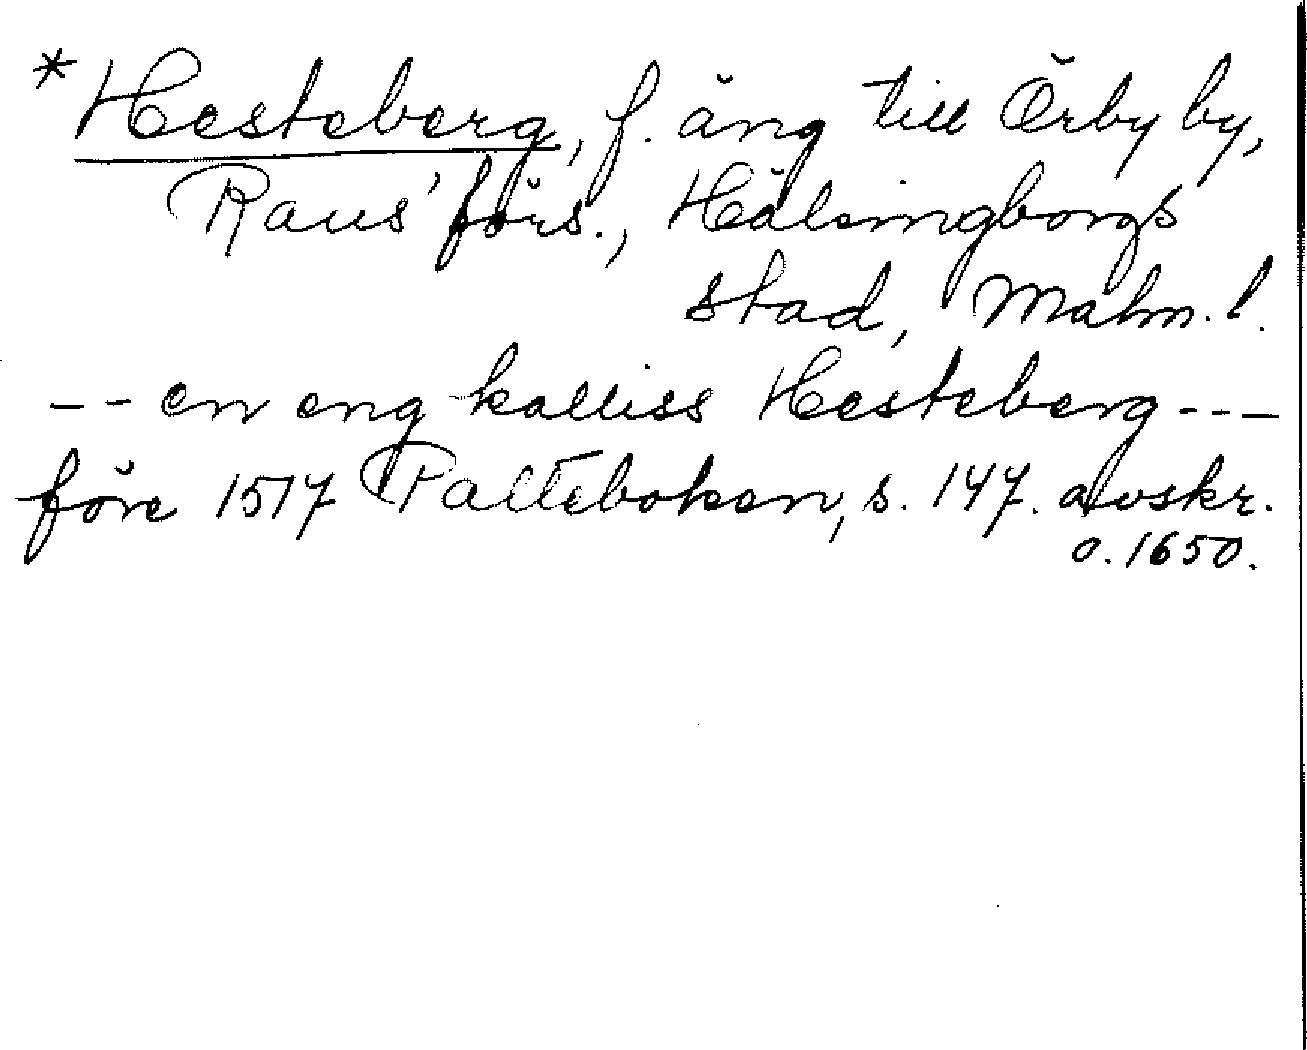 *Hesteberg, f. äng till Örby by,
Raus' förs., Hälsingborgs
stad, Malm. l.
-- en eng kalliss Hesteberg ---
före 1517 Palteboken, s. 147. avskr.
o. 1650.